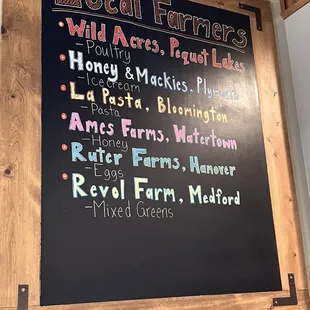 Local Farmers
Wild Acres, Pequot Lakes
- Poultry
Honey & Mackies, Plymouth
- Icecream
La Pasta, Bloomington
- Pasta
Ames Farms, Watertown
- Honey
Ruter Farms, Hanover
- Eggs
Revol Farm, Medford
- Mixed Greens